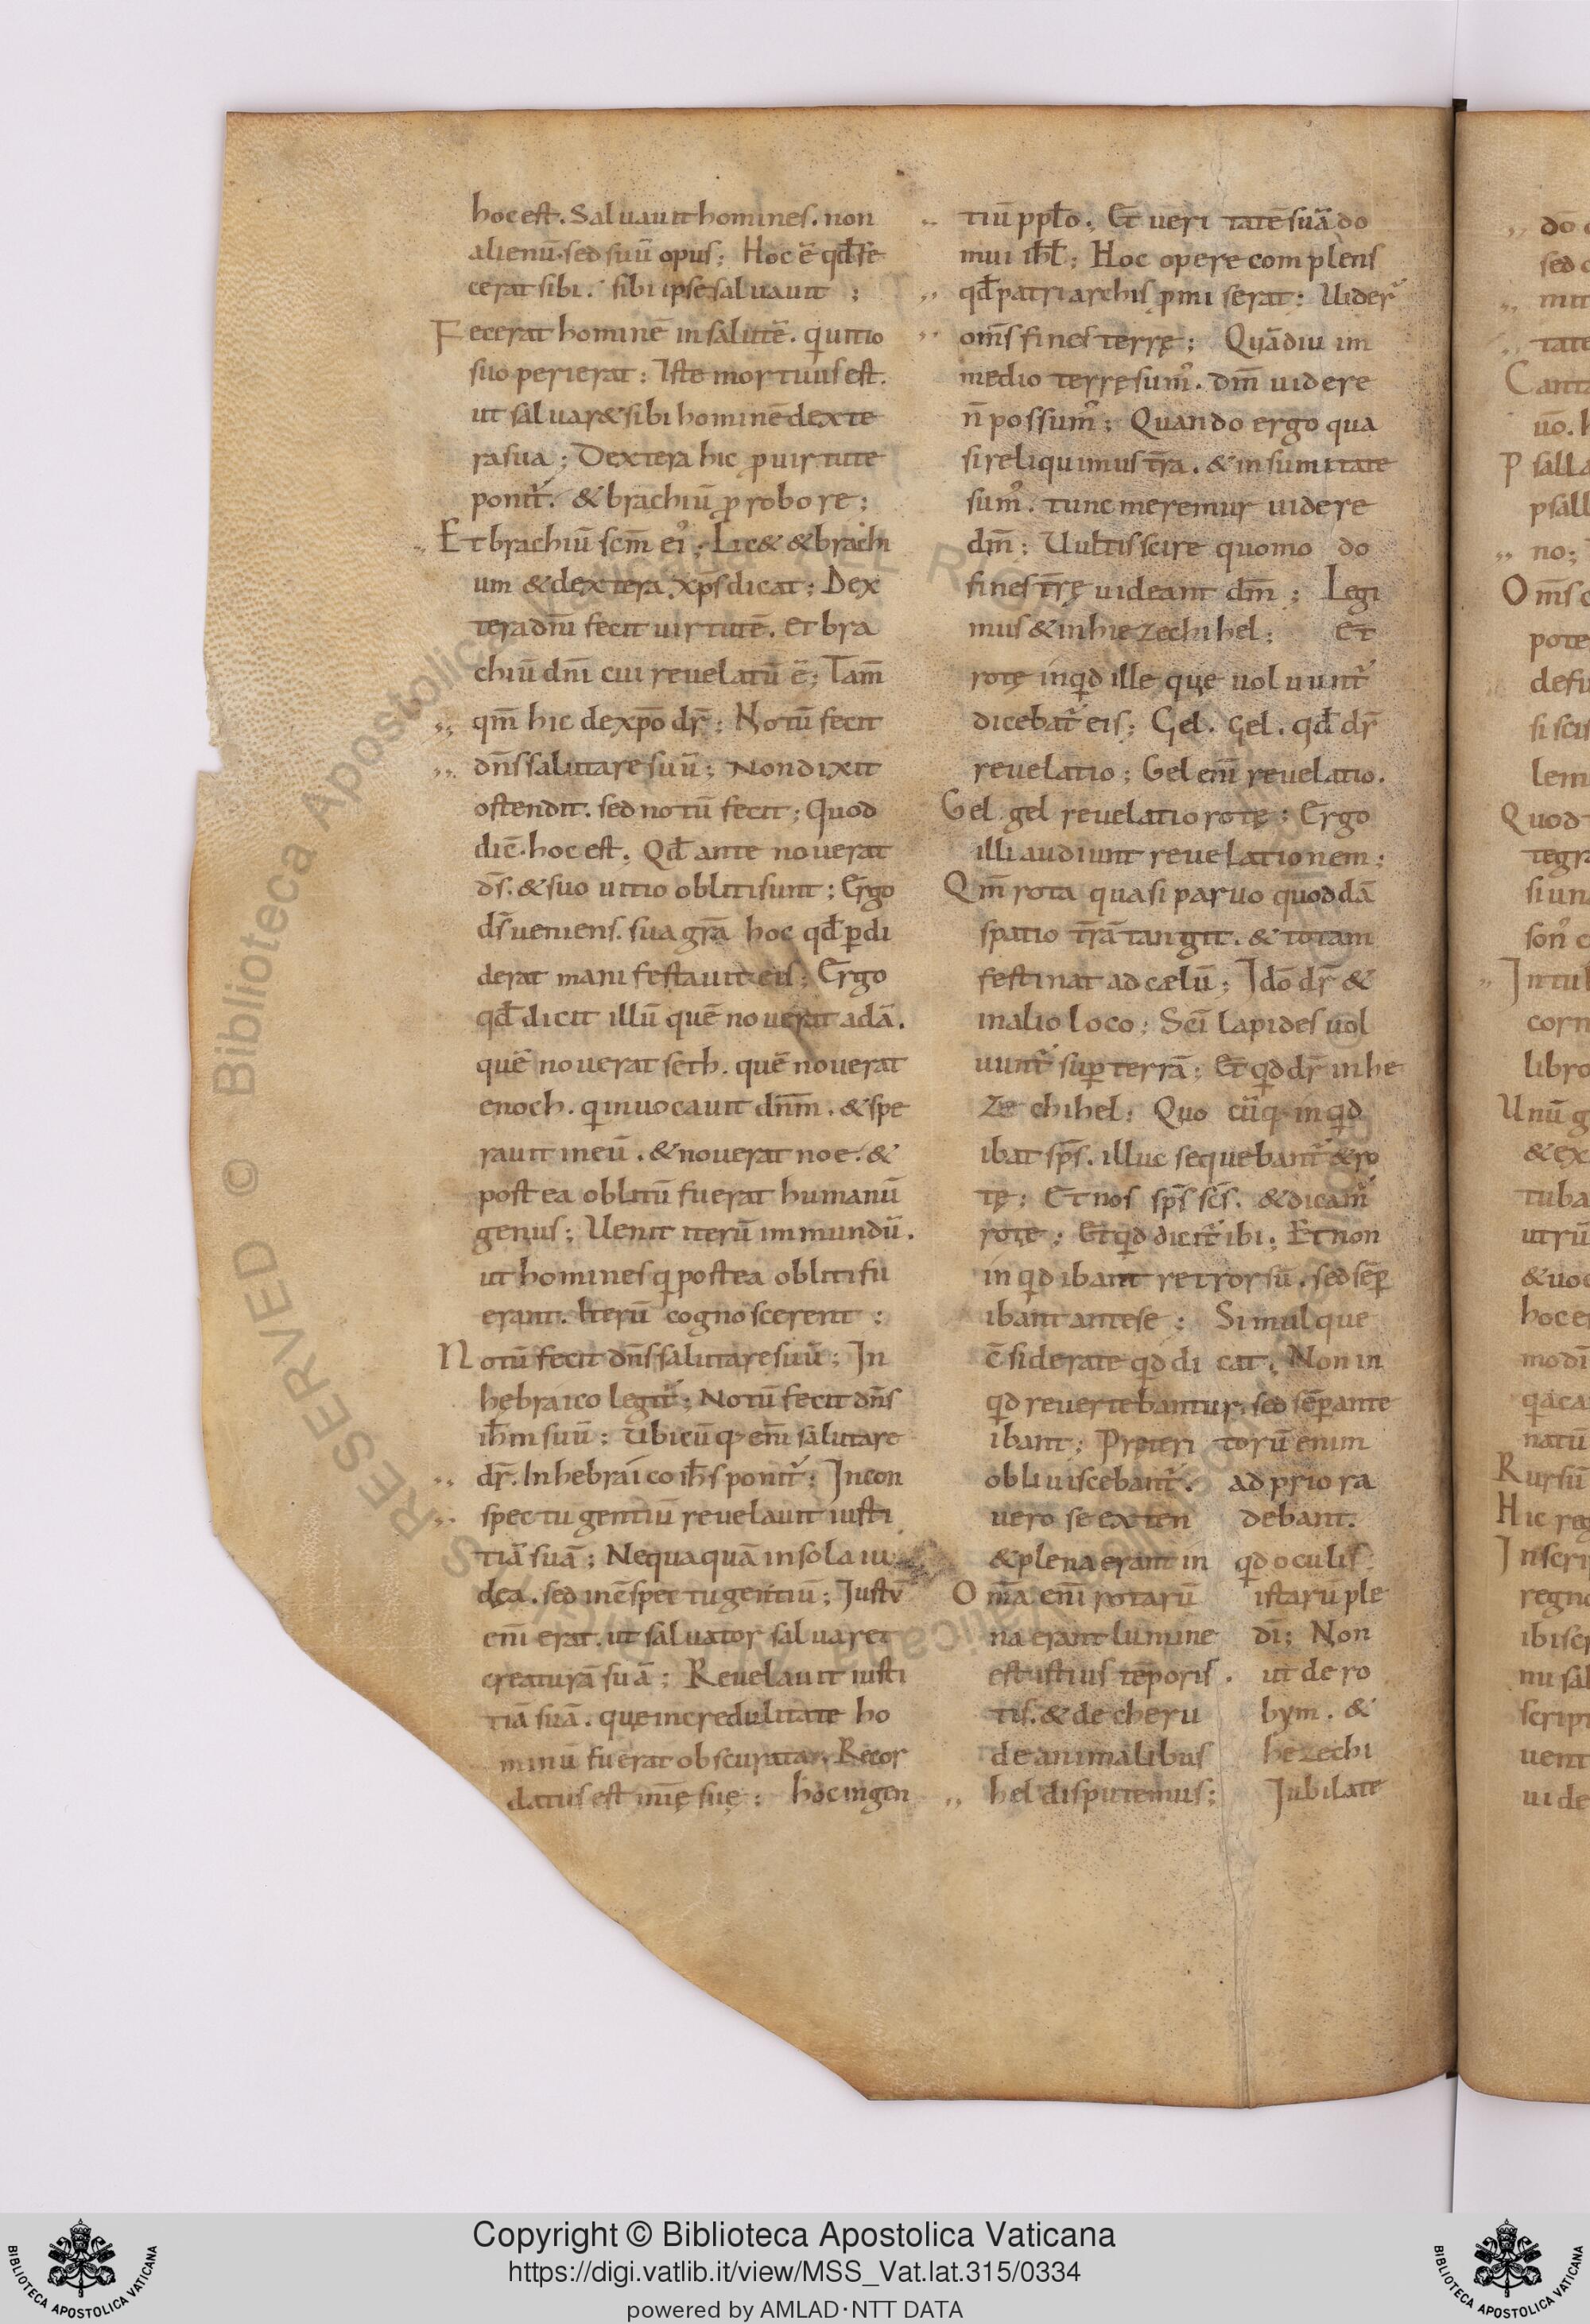 hoc est. Saluauit homines. non
alienū. sed suū opus; Hoc ē qđ fe
cerat sibi. sibi ipse saluauit;
Fecerat hominē in salutē. qui uitio
suo perierat: Iste mortuus est.
ut saluar& sibi hominē dexte
ra sua; Dextera hic ꝓ uirtute
ponit᷑. & brachiū ꝓ robore;
„ Et brachiū scm̄ ei᷒; Lic& & brachi
um & dextera xp̄s dicat; Dex
tera dn̄i fecit uirtutē. Et bra
chiū dn̄i cui reuelatū ē; Tam̄
„ qm̄ hic de xp̄o dr̄; Notū fecit
„ dn̄s salutare suū; Non dixit
ostendit. sed notū fecit; Quod
dic̄. hoc est. Qđ ante nouerat
ds̄. & suo uitio obliti sunt; Ergo
ds̄ ueniens. sua gr̄a hoc qđ ꝑdi
derat manifestauit eis; Ergo
qđ dicit illū quē nouerat adā.
quē nouerat seth. quē nouerat
enoch. q inuocauit dnm̄. & spe
rauit in eū. & nouerat noe. &
postea oblitū fuerat humanū
genus; Uenit iterū in mundū.
ut homines q postea obliti fu
erant. Iterū cognoscerent;
Notū fecit dn̄s salutare suū; In
hebraico legit᷑; Notū fecit dn̄s
ih̄m suū; Ubicūq; eni̅ salutare
„ dr̄. In hebraico ih̄s ponit᷑; In con
„ spectu gentiū reuelauit iusti
tiā suā; Nequaquā in sola iu
dęa. sed in c̄spectu gentiū; Justū
eni̅ erat. ut saluator saluaret
creaturā suā; Reuelauit iusti
tiā suā. quę incredulitate ho
minū fuerat obscurata; Recor
datus est mię suę; hoc in gen
„ tiū pplo; Et ueritatē suā do
mui ihl̄; Hoc opere complens
„ qđ patriarchis ꝓmiserat; Uider᷑
„ oms̄ fines terrę; Quādiu in
medio terrę sum᷒. dm̄ uidere
n̄ possum᷒; Quando ergo qua
si reliquimus tr̄a. & in sumitate
sum᷒. tunc meremur uidere
dm̄; Uultis scire quomodo
fines tr̄ę uideant dm̄; Legi
mus & in hiezechihel; Et
rotę inqd ille quę uoluunt᷑
dicebat᷑ eis; Gel. Gel. qđ dr̄
reuelatio; Gel eni̅ reuelatio.
Gel gel reuelatio rotę; Ergo
illi audiunt reuelationem;
Qm̄ rota quasi paruo quoddā
spatio tr̄ā tangit. & totam
festinat ad cælū; Ido̅ dr̄ &
in alio loco; Sci̅ lapides uol
uunt᷑ suꝑ terrā; Et qd dr̄ in he
zechihel; Quocūq; inqd
ibat sp̄s. illuc sequebant᷑ & ro
tę; Et nos sp̄s sc̄s. & dicam᷑
rotę; Et qd dicit᷑ ibi; Et non
inqd ibant retrorsū. sed sēꝑ
ibant ante se; Simulque
c̄siderate qd dicat; Non in
qd reuertebantur. sed sēꝑ ante
ibant; Preteritorū enim
obliuiscebant᷑. ad priora
uero se extendebant.
& plena erant inqd oculis;
Om̄a eni̅ rotarū istarū ple
na erant lumine di̅; Non
est istius tēporis. ut de ro
tis. & de cherubym. &
de animalibus hezechi
„ hel disputemus; Jubilate
Copyright © Biblioteca Apostolica Vaticana
https://digi.vatlib.it/view/MSS_Vat.lat.315/0334
powered by AMLAD·NTT DATA